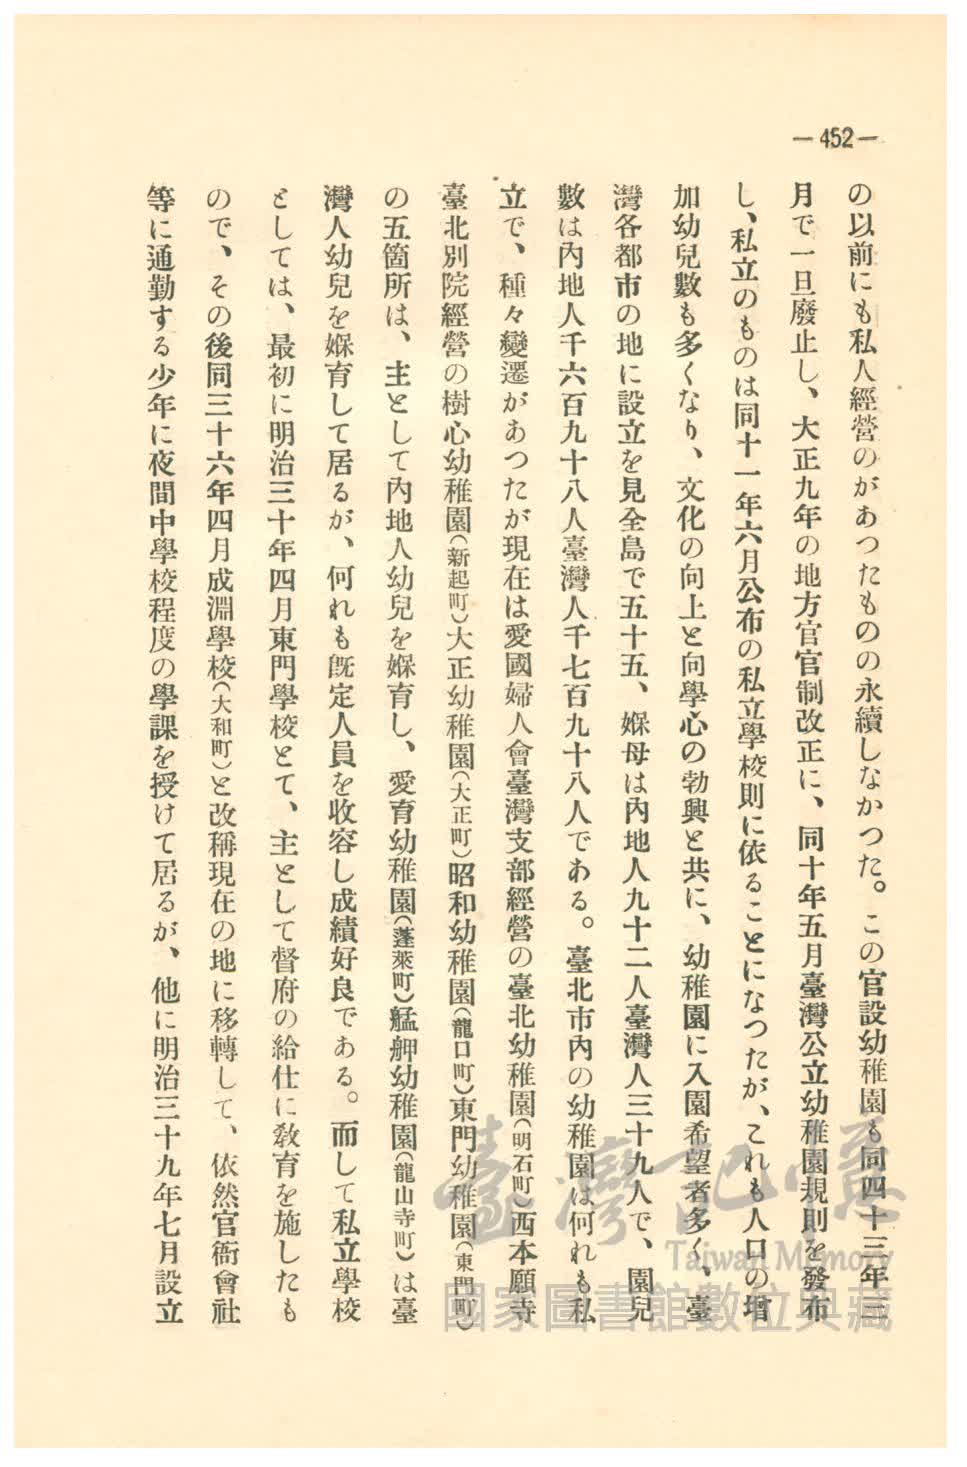 —452—
の以前にも私人經營のがあつたものの永續しなかつた。この官設幼稚園も同四十三年三
月で一旦廢止し、大正九年の地方官官制改正に、同十年五月臺灣公立幼稚園規則を發布
し、私立のものは同十一年六月公布の私立學校則に依ることになつたが、これも人口の增
加幼兒數も多くなり、文化の向上と向學心の勃興と共に、幼稚園に入園希望者多く、臺
灣各都市の地に設立を見全島で五十五、婇母は內地人九十二人臺灣人三十九人で、園兒
數は內地人千六百九十八人臺灣人千七百九十八人である。臺北市內の幼稚園は何れも私
立で、種々變遷があつたが現在は愛國婦人會臺灣支部經營の臺北幼稚園(明石町)西本願寺
臺北別院經營の樹心幼稚園(新起町)大正幼稚園(大正町)昭和幼稚園(龍口町)東門幼稚園(東門町)
の五箇所は、主として內地人幼兒を婇育し、愛育幼稚園(蓬萊町)艋舺幼稚園(龍山寺町)は臺
灣人幼兒を婇育して居るが、何れも旣定人員を收容し成績好良である。而して私立學校
としては、最初に明治三十年四月東門學校とて、主として督府の給仕に敎育を施したも
ので、その後同三十六年四月成淵學校(大和町)と改稱現在の地に移轉して、依然官衙會社
等に通勤する少年に夜間中學校程度の學課を授けて居るが、他に明治三十九年七月設立
臺灣記憶
Taiwan Memory
國家圖書館數位典藏